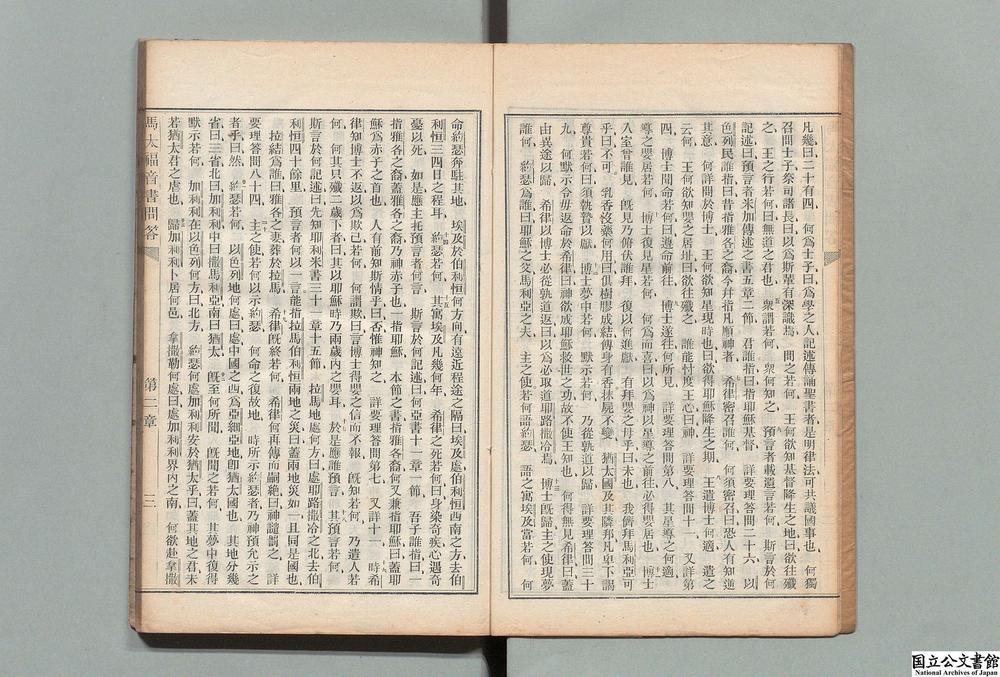 凡幾曰二十有四、何爲士子曰爲學之人記述傳誦聖書者是明律法可共議國事也、何獨
召問士子祭司諸長曰以爲斯輩有深識焉、問之若何、王何欲知基督降生之地曰欲往殲
之、王之行若何曰無道之君也、衆謂若何、衆何知之、預言者載遺言若何、斯言於何
記述曰預言者米加傳述之書五章二節、君誰指曰指耶穌基督、詳要理答問二十六、以
色列民誰指曰昔指雅各之裔今幷指凡順神者、希律密召誰何、何須密召曰恐人有知逆
其意、何詳問於博士、王何欲知星現時也曰欲得耶穌降生之期、王遣博士何適、遣之
云何、王何欲知嬰之居址曰欲往殲之、誰能忖度王心曰神、詳要理答問十一、又詳第
四、博士聞命若何曰遵命前往、博士遂往何所見、詳要理答問第八、其星導之何適、
導之嬰居若何、博士復見星若何、何爲而喜曰以爲神以星導之前往必得嬰居也、博士
入室曾誰見、旣見乃俯伏誰拜、復以何進獻、有拜嬰之母乎曰未也、我儕拜馬利亞可
乎曰不可、乳香沒藥何用曰俱樹膠成結傳身有香抹屍不變、猶太國及其隣邦凡卑下謁
尊貴若何曰須執贄以獻、博士夢中若何、默示若何、乃從孰道以歸、詳要理答問三十
九、何默示令毋返命於希律曰神欲成耶穌救世之功故不使王知也、何得無見希律曰蓋
由異途以歸、希律以博士必從孰道返曰以爲必取道耶路撒冷焉、博士旣歸主之使現夢
誰何、約瑟爲誰曰耶穌之父馬利亞之夫、主之使若何語約瑟、語之寓埃及當若何、何
命約瑟奔駐其地、埃及於伯利恒何方向有遠近程途之隔曰埃及處伯利恒西南之方去伯
利恒三四日之程耳、約瑟若何、其寓埃及凡幾何年、希律之死若何曰身染奇疾心遇奇
憂以死、如是應主托預言者何言、斯言於何記述曰何亞書十一章一節、吾子誰指曰一
指雅各之裔蓋雅各之裔乃神赤子也一指耶穌、本節之書指雅各裔何又兼指耶穌曰蓋耶
穌爲赤子之首也、人有前知斯情乎曰否惟神知之、詳要理答問第七、又詳十一、時希
律知博士不返以爲欺己若何、何謂欺曰博士得嬰之信而不報、旣知若何、乃遣人若
何、何其只殲二歲下者曰其以耶穌時乃兩歲內之嬰耳、於是應誰預言、其預言若何、
斯言於何記述曰先知耶利米書三十一章十五節、拉馬地處何方曰處耶路撒冷之北去伯
利恒四十餘里、預言者何以一言能指拉馬伯利恒兩地之災曰蓋兩地災如一且同是國也、
拉結爲誰曰雅各之妻葬於拉馬、希律旣終若何、希律何再傳而嗣絕曰神譴罰之、詳
要理答問八十四、主之使若何以示約瑟、何命之復故地、時所示約瑟者乃神預允示之
者乎曰然、約瑟若何、以色列地何處曰處中國之西爲亞細亞地卽猶太國也、其地分幾
省曰三省北曰加利利中曰撒馬利亞南曰猶太、旣至何所聞、旣聞之若何、其夢中復得
默示若何、加利利在以色列何方曰北方、約瑟何處加利利安於猶太乎曰蓋其地之君未
若猶太君之虐也、歸加利利卜居何邑、拿撒勒何處曰處加利利界內之南、何欲赴拿撒
馬太福音書問答 第二章 三
国立公文書館
National Archives of Japan